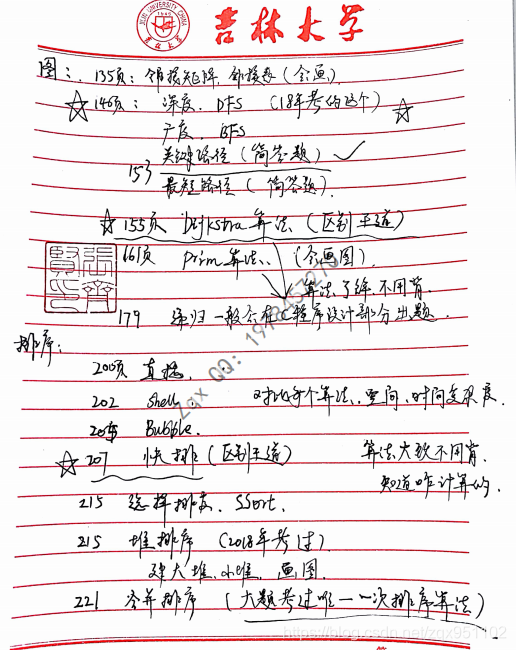 JILIN UNIVERSITY CHINA
吉林大学
图: 135页: 邻接矩阵, 邻接表 (会画)
☆ 146页: 深度, DFS (18年考的这个) ☆
广度, BFS
153 关键路径 (简答题) ✓
最短路径 (简答题)
☆ 155页 Dijkstra算法 (区别王道)
161页 prim算法, (会画图)
算法了解不用背
179 递归一般会在C程序设计部分出题
排序:
200页 直接,
202 shell 对比每个算法, 空间, 时间复杂度
205 Bubble,
☆ 207 快排 (区别王道) 算法大致不用背,
知道咋计算的,
215 选择排序, SSort,
215 堆排序 (2018年考过)
建大堆, 小堆, 画图
221 合并排序 (大题考过唯一一次排序算法)
Zqx QQ:
https://blog.csdn.net/zqx951102